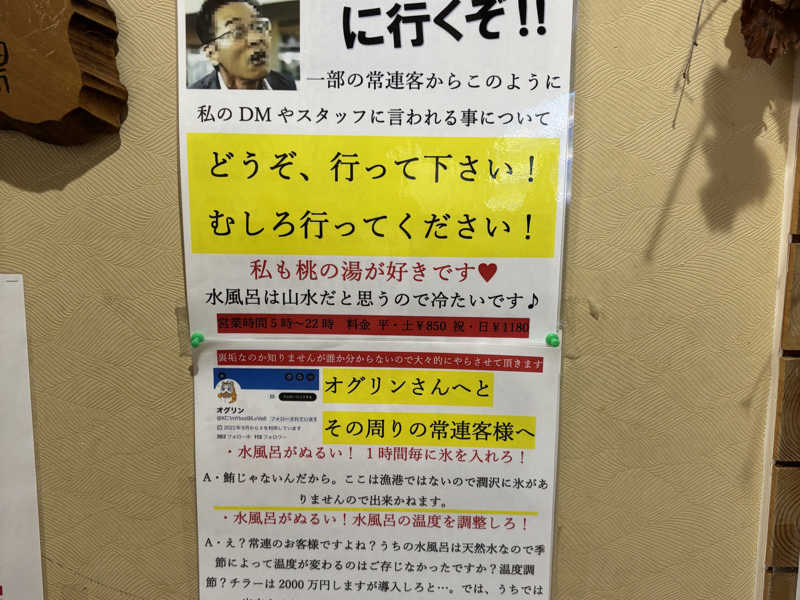 に行くぞ!!
一部の常連客からこのように
私のDMやスタッフに言われる事について
どうぞ、行って下さい！
むしろ行ってください！
私も桃の湯が好きです♥
水風呂は山水だと思うので冷たいです♪
営業時間5時～22時　料金 平・土￥850 祝・日￥1180
裏垢なのか知りませんが誰か分からないので大々的にやらせて頂きます
オグリン
2022年9月からXを利用しています
オグリンさんへと
その周りの常連客様へ
・水風呂がぬるい！ 1時間毎に氷を入れろ！
A・鮪じゃないんだから。ここは漁港ではないので潤沢に氷があ
りませんので出来かねます。
・水風呂がぬるい！水風呂の温度を調整しろ！
A・え？常連のお客様ですよね？うちの水風呂は天然水なので季
節によって温度が変わるのはご存じなかったですか？温度調
節？チラーは2000万円しますが導入しろと…。では、うちでは